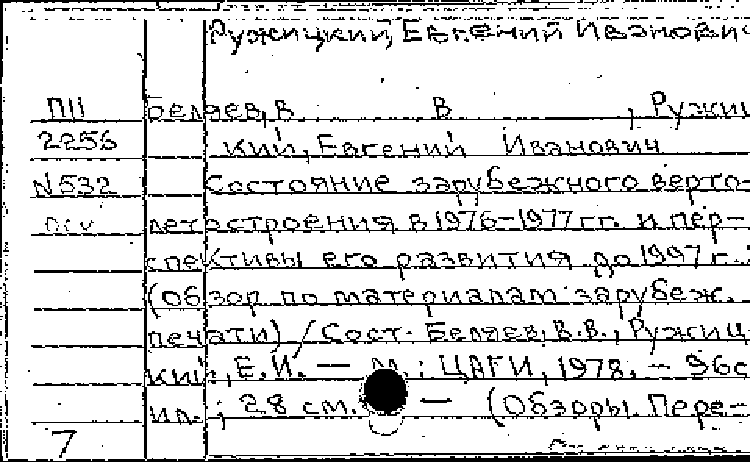 Ружицкий, Евгений Иванович
П11 Беляев, В. В. , Ружиц
2256 кий, Евгений Иванович
N532 Состояние зарубежного верто-
летостроения в 1976-1977 гг. и пер-
спективы его развития до 1997 г.
(Обзор по материалам зарубеж.
печати) / Сост. Беляев, В.В., Ружиц
кий, Е.И. — М.: ЦАГИ, 1978. - 96с
ил.; 28 см. — (Обзоры. Пере-
7